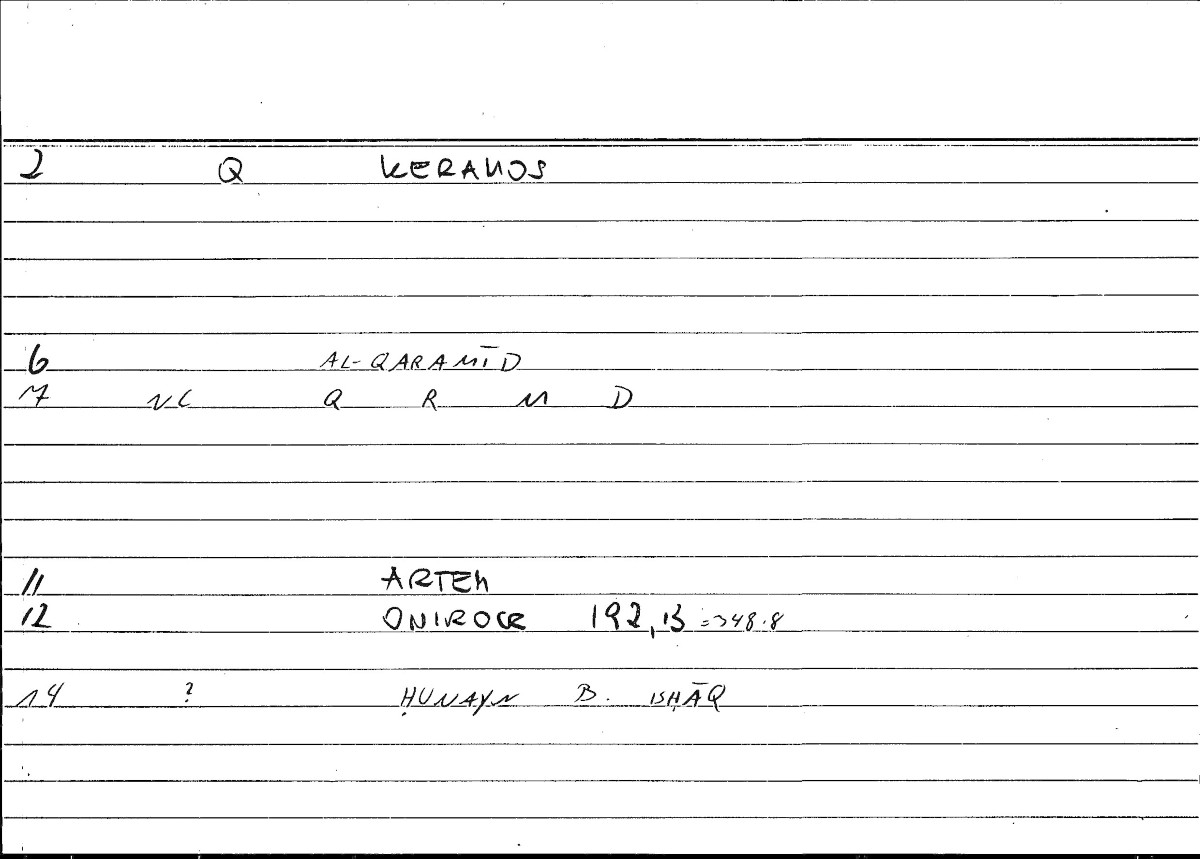 2 Q KERAMOS
6 AL-QARAMĪD
7 NC Q R M D
11 ARTEM
12 ONIROCR 192,13 =348.8
14 ? ḤUNAYN B. ISḤĀQ